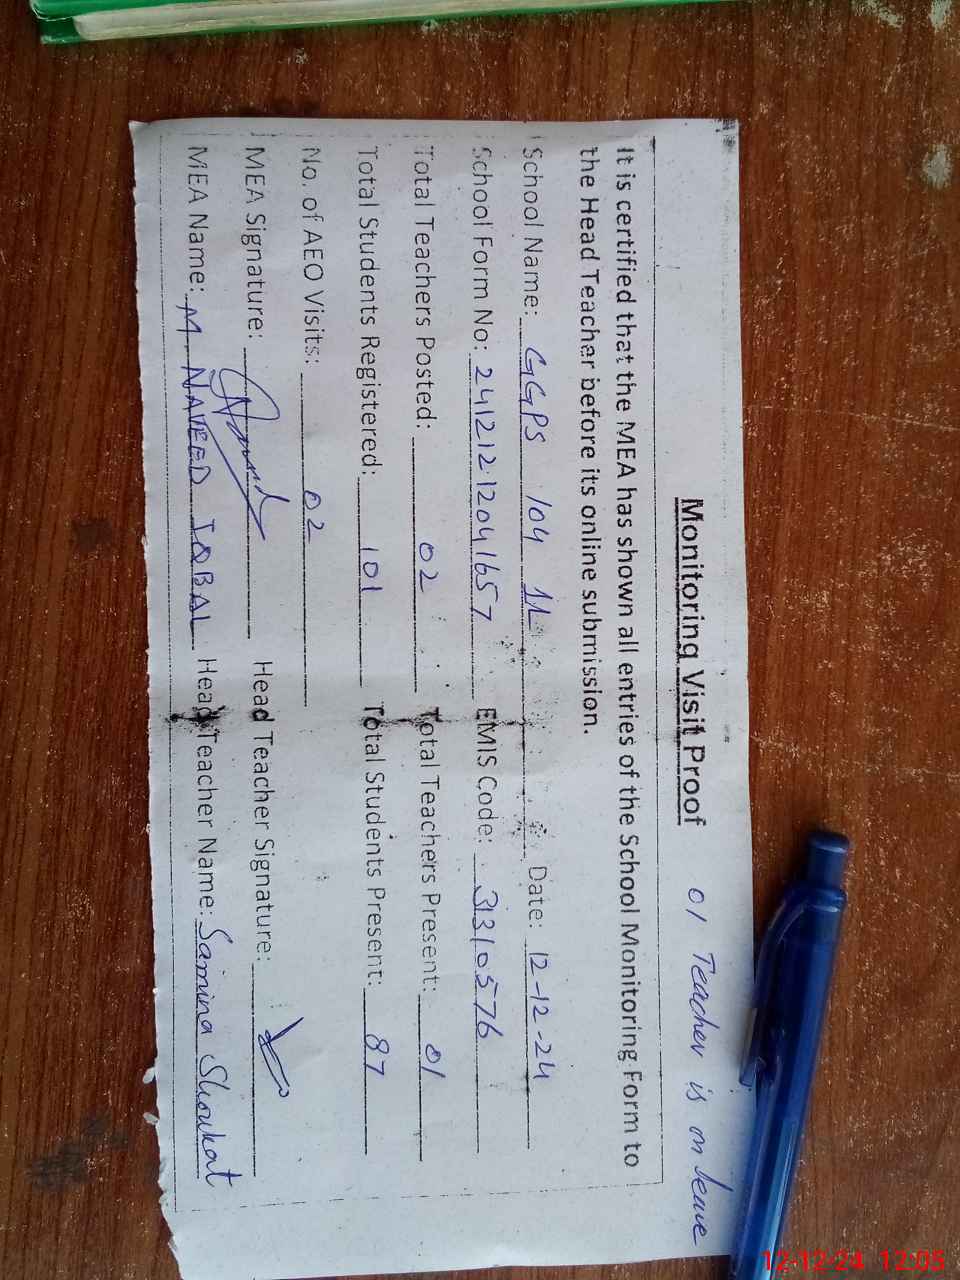 Monitoring Visit Proof 01 Teacher is on leave
It is certified that the MEA has shown all entries of the School Monitoring Form to
the Head Teacher before its online submission.
School Name: GGPS 104 1L Date: 12-12-24
School Form No: 241212 12041657 EMIS Code: 31310576
Total Teachers Posted: 02 Total Teachers Present: 01
Total Students Registered: 101 Total Students Present: 87
No. of AEO Visits: 02
MEA Signature: Head Teacher Signature:
MEA Name: M NAVEED IQBAL Head Teacher Name: Samina Shoukat
12-12-24 12:05